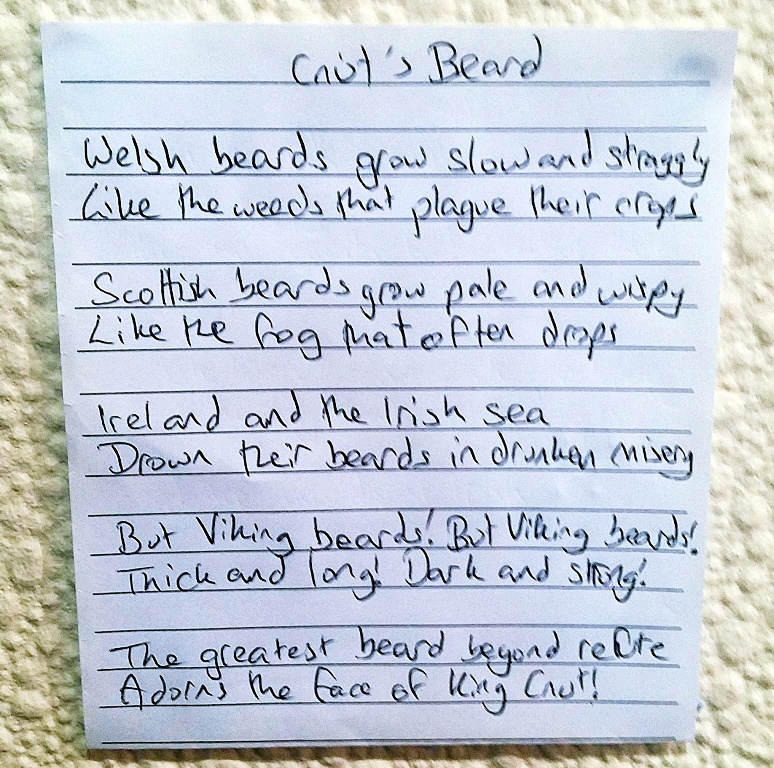 Cnut's Beard
Welsh beards grow slow and straggly
Like the weeds that plague their crops
Scottish beards grow pale and wispy
Like the fog that often drops
Ireland and the Irish sea
Drown their beards in drunken misery
But Viking beards! But Viking beards!
Thick and long! Dark and strong!
The greatest beard beyond refute
Adorns the face of King Cnut!